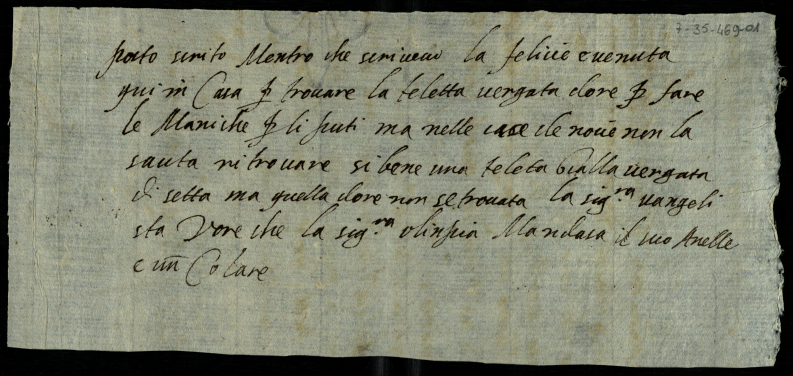 7-35-469-01
scrito Mentro che scrivevo la felicie e venuta
qui in Casa p trovare la teletta vergata dore p fare
le Maniche p li puti ma nelle case de nove non la
sauta ritrovare si bene una teleta Gialla vergata
di setta ma quella dore non se trovata la sig.ra vangeli
sta Vore che la sig.ra olinpia Mandasa il suo Anelle
e un Colare